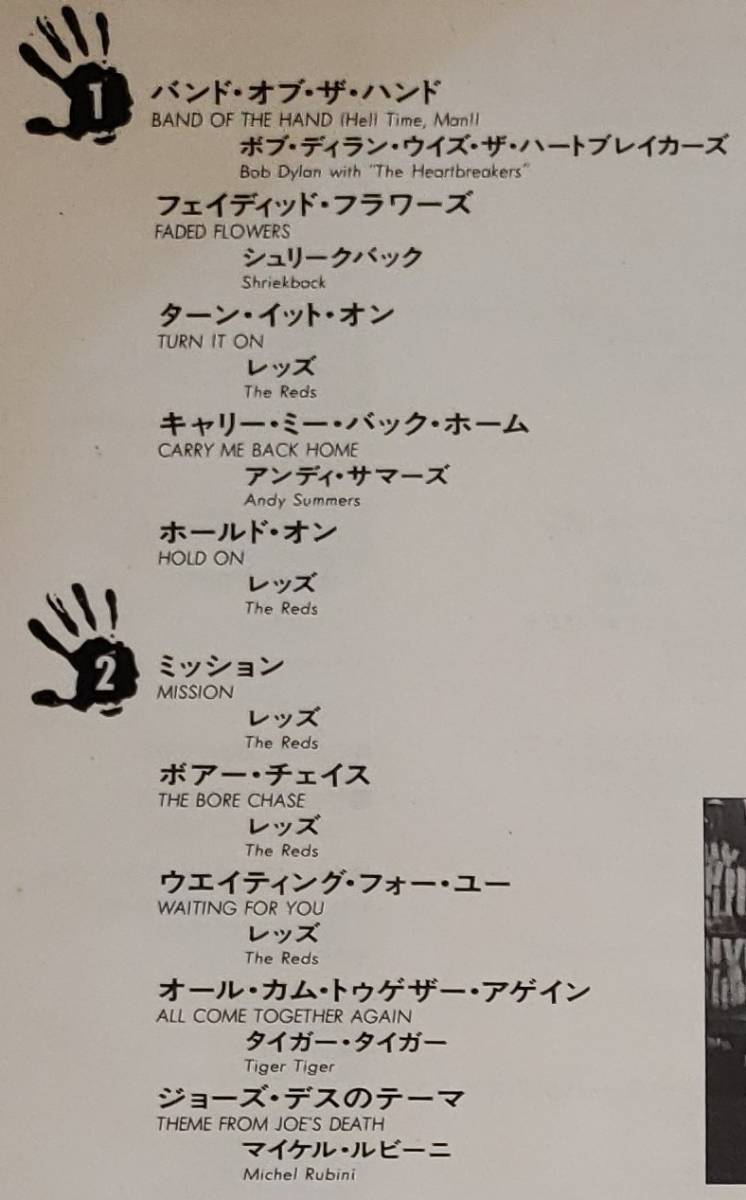 1
バンド・オブ・ザ・ハンド
BAND OF THE HAND (Hell Time, Man!)
ボブ・ディラン・ウイズ・ザ・ハートブレイカーズ
Bob Dylan with "The Heartbreakers"
フェイディッド・フラワーズ
FADED FLOWERS
シュリークバック
Shriekback
ターン・イット・オン
TURN IT ON
レッズ
The Reds
キャリー・ミー・バック・ホーム
CARRY ME BACK HOME
アンディ・サマーズ
Andy Summers
ホールド・オン
HOLD ON
レッズ
The Reds
2
ミッション
MISSION
レッズ
The Reds
ボアー・チェイス
THE BORE CHASE
レッズ
The Reds
ウエイティング・フォー・ユー
WAITING FOR YOU
レッズ
The Reds
オール・カム・トゥゲザー・アゲイン
ALL COME TOGETHER AGAIN
タイガー・タイガー
Tiger Tiger
ジョーズ・デスのテーマ
THEME FROM JOE'S DEATH
マイケル・ルビーニ
Michel Rubini